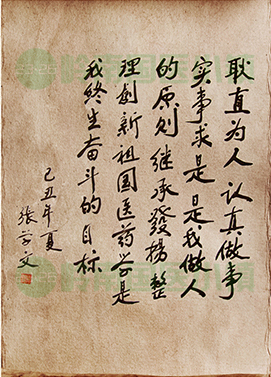 耿直为人认真做事
实事求是是我做人
的原则继承發揚整
理创新祖国医药学是
我终生奋斗的目标
己丑年夏
张学文